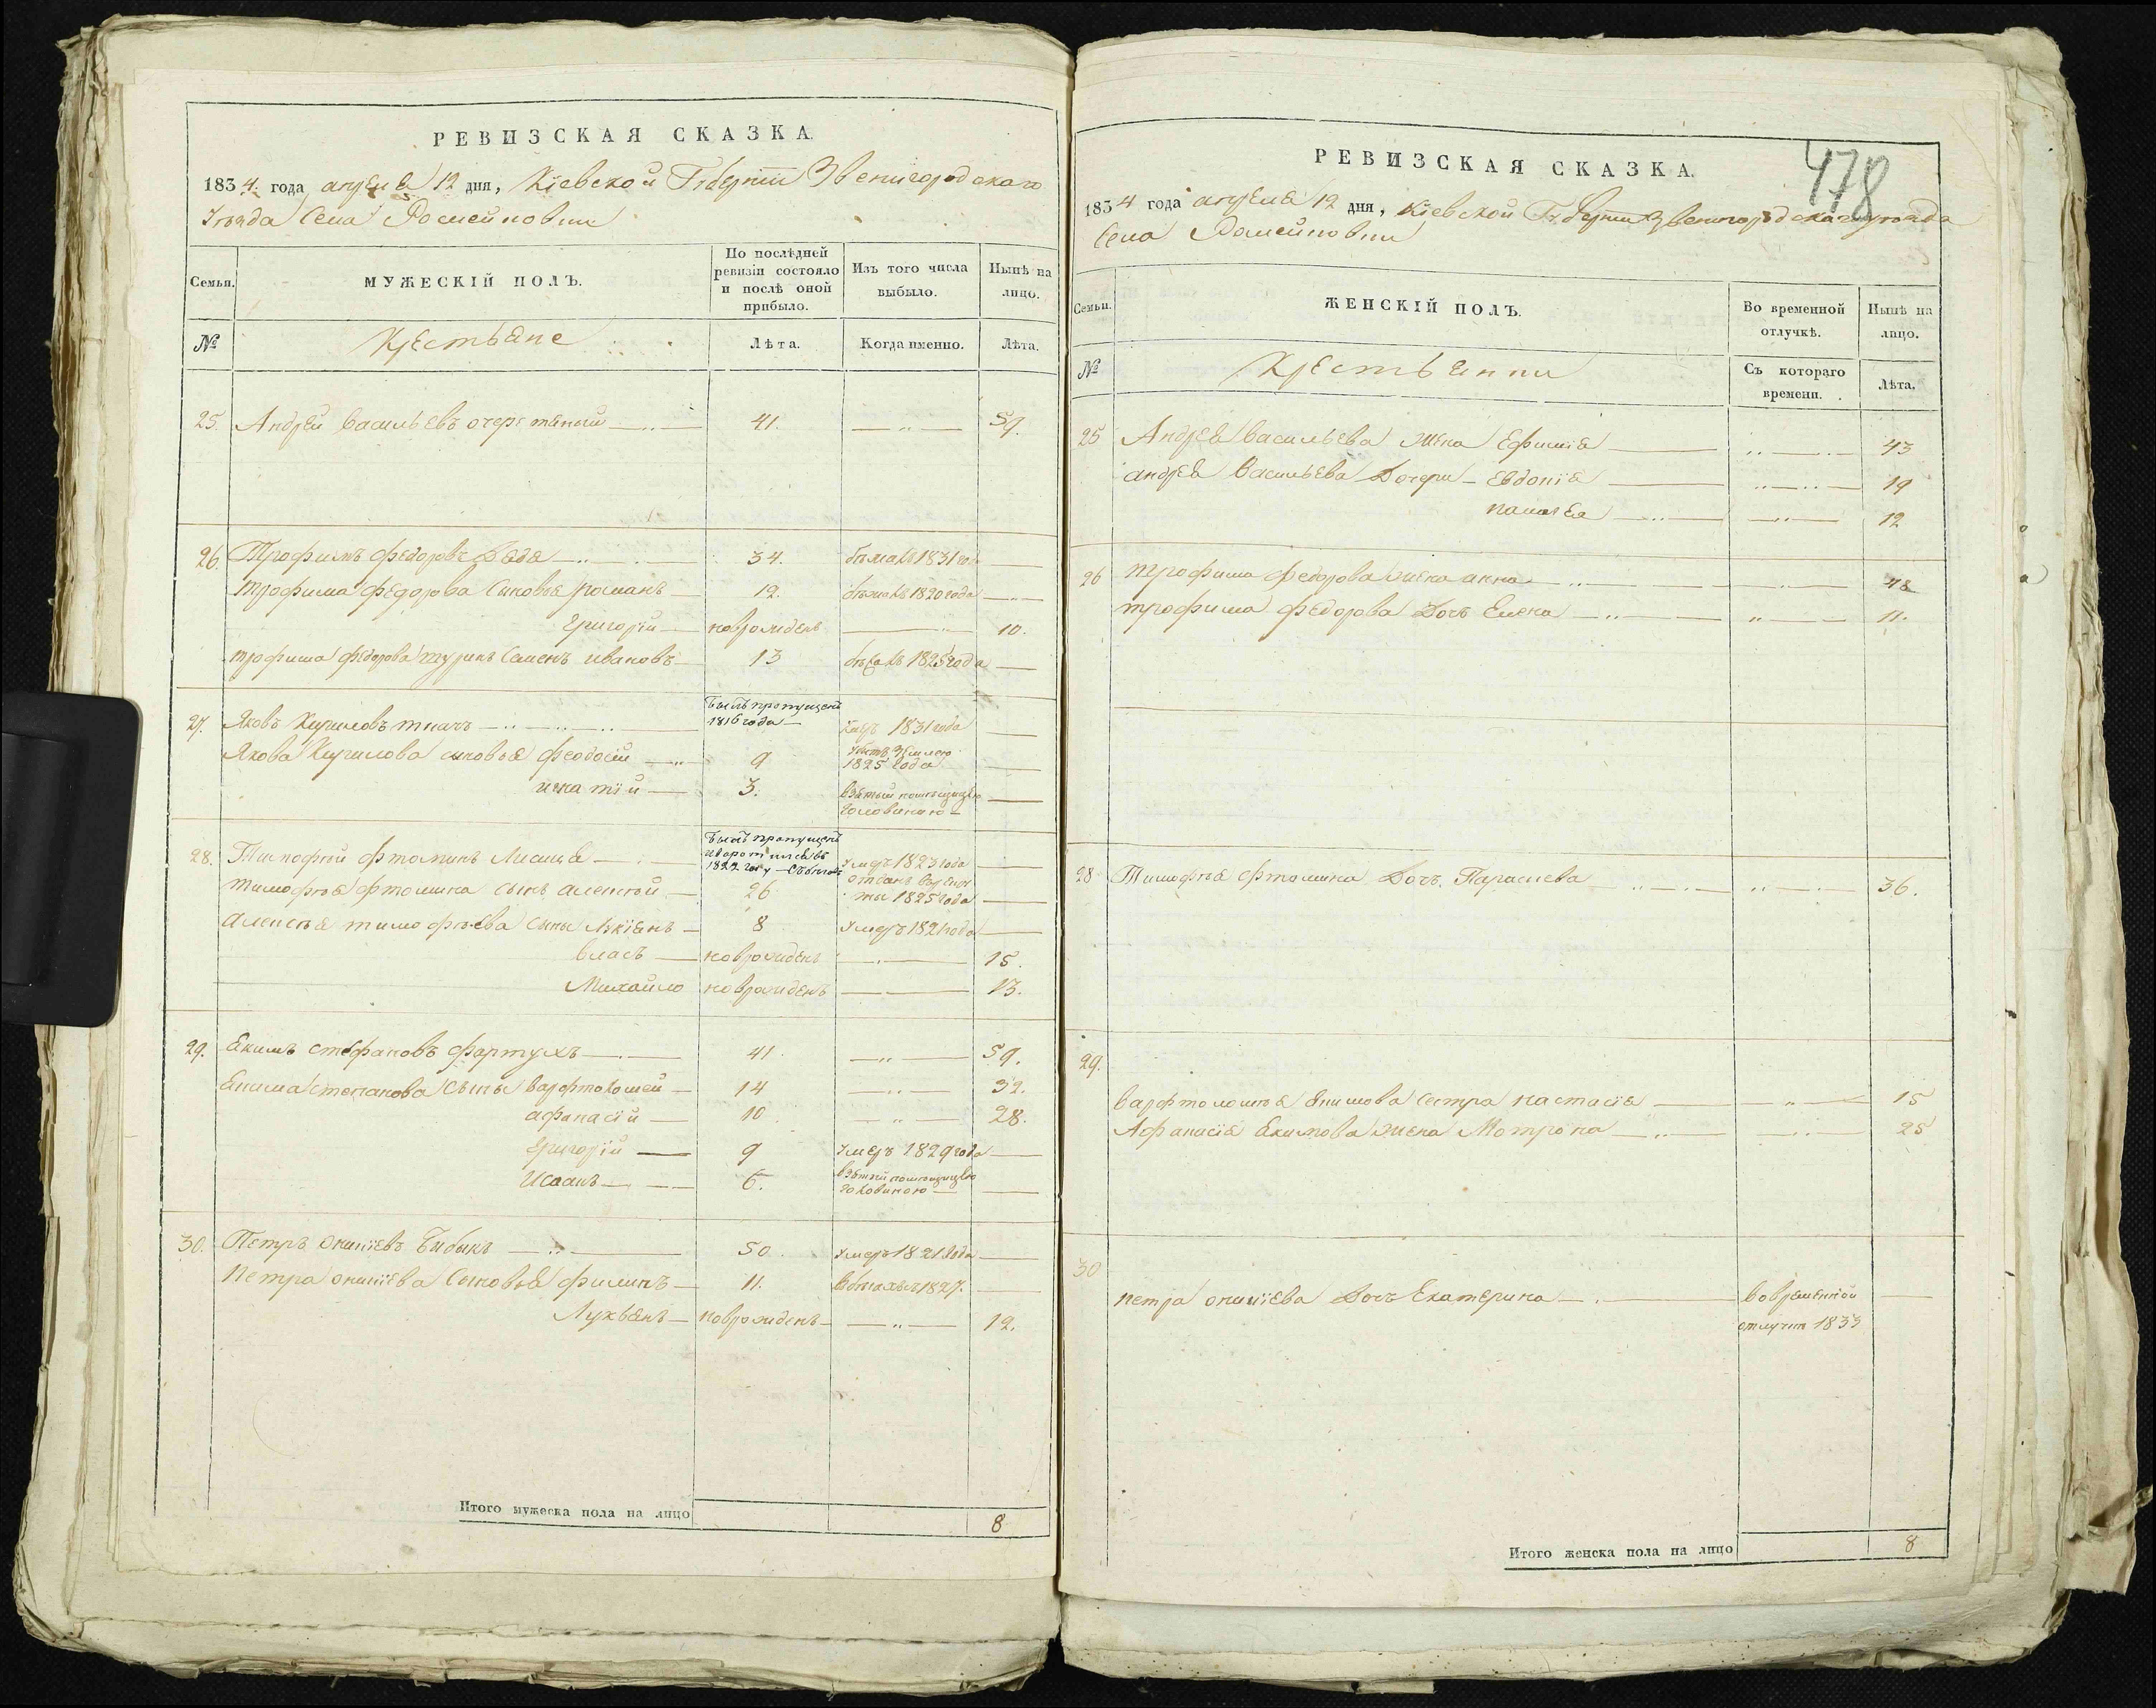 РЕВИЗСКАЯ СКАЗКА.
1834. года апреля 12 дня, Кіевской Губерніи Звенигородскаго
Уѣзда Села
Семьи.
МУЖЕСКІЙ ПОЛЪ.
По послѣдней ревизіи состояло и послѣ оной прибыло.
Изъ того числа выбыло.
Нынѣ на лицо.
№
Крестьяне
Лѣта.
Когда именно.
Лѣта.
25. Андрей Васильевъ 41. 59.
26. Трофимъ Федоровъ 34. 1831
трофима федорова сыновья романъ 12. 1820 года
григорій новорожденъ 10.
трофима федорова шуринъ Семенъ ивановъ 13 1825 года
Былъ пропущенъ
27. Яковъ Кириловъ ткачъ 1816 года 1831 года
Якова Кирилова сыновья феодосій 9 1825 года
игнатій 3. взятый помѣщицею
головиною
Былъ пропущенъ
28. Тимофей Лисица 1822 умеръ 1823 года
тимофѣя сынъ алексѣй 26 отданъ 1825 года
алексѣя тимофѣева сыны лукіянъ 8 умеръ 1821 года
власъ новорожденъ 15.
Михайло новорожденъ 13.
29. Екимъ стефановъ фартухъ 41 59.
Екима степанова сыны варфтоломей 14 32.
афанасій 10 28.
григорій 9 умеръ 1829 года
Исаакъ 6. взятый помѣщицею
головиною
30. Петръ онисіевъ Бибикъ 50. умеръ 1821 года
петра онисіева сыновья филипъ 11. 1827.
Лукьянъ новорожденъ 12.
Итого мужеска пола на лицо 8
478
РЕВИЗСКАЯ СКАЗКА.
1834 года апреля 12 дня, Кіевской Губерніи Звенигородскаго уѣзда
Села
Семьи.
ЖЕНСКІЙ ПОЛЪ.
Во временной отлучкѣ.
Нынѣ на лицо.
№
Съ котораго времени.
Лѣта.
25 Андрея васильева жена Ефимія 43
андрея Васильева дочери Евдокія 19
12
26 трофима федорова жена анна
трофима федорова дочь Елена 11.
28 Тимофѣя дочь Параскева 36.
29.
варфтоломѣя екимова сестра настасія 15
Афанасія Екимова жена Мотрона 25
30
петра онисіева дочь Екатерина вовременной
отлучкѣ 1833
Итого женска пола на лицо 8